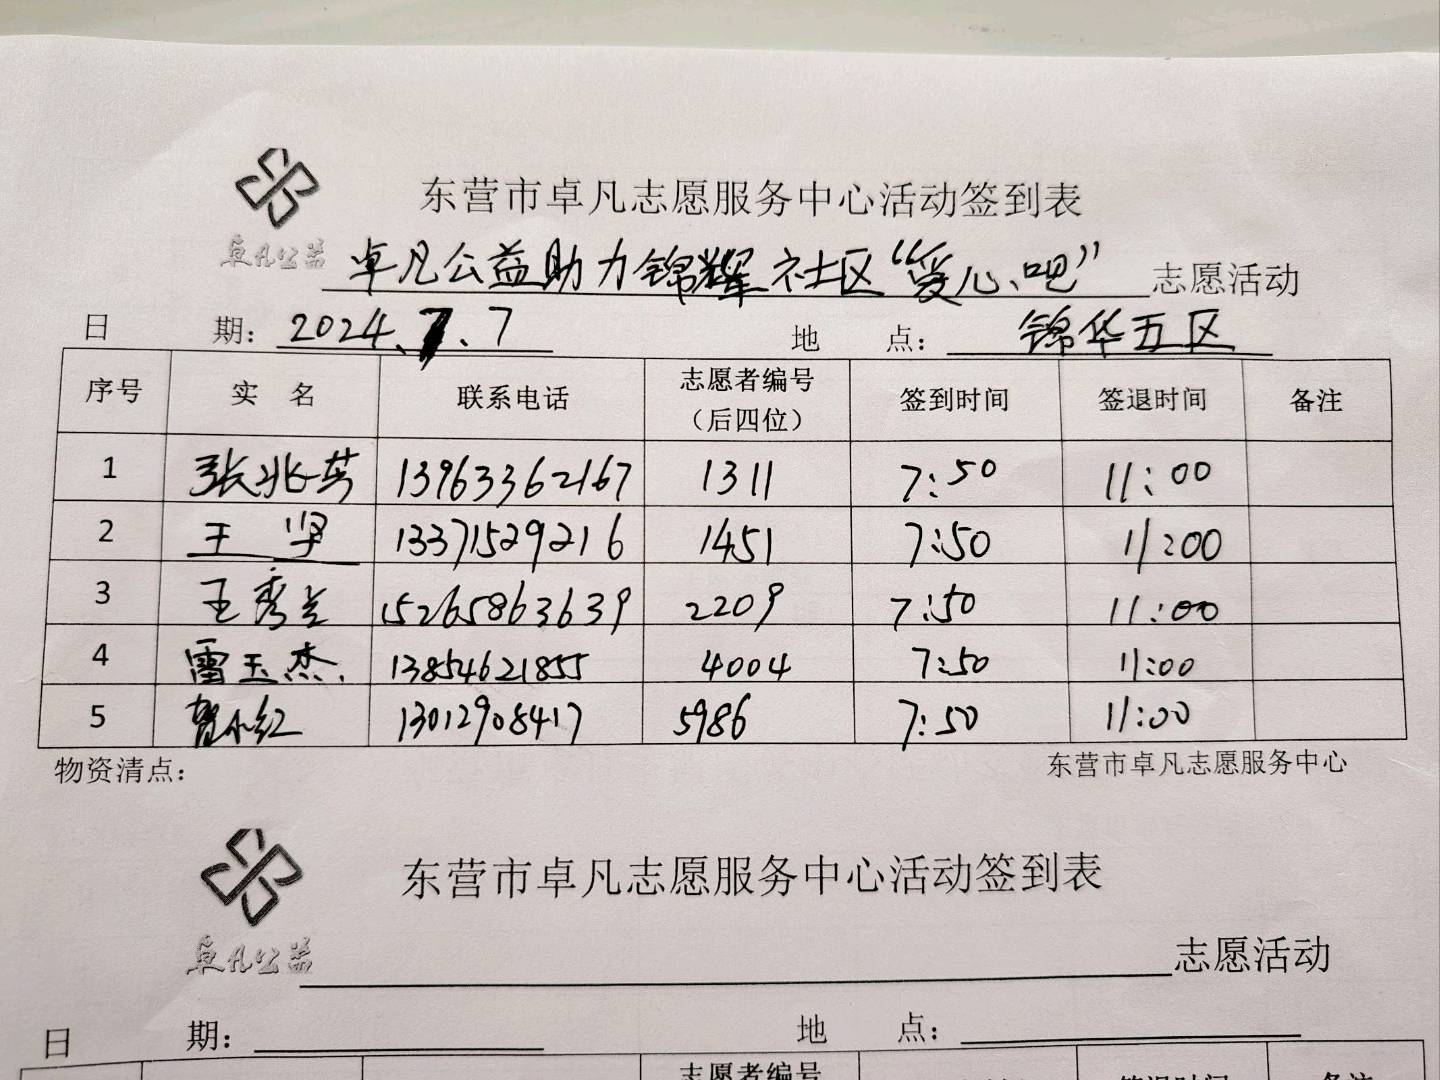 东营市卓凡志愿服务中心活动签到表
卓凡公益
卓凡公益助力锦辉社区“爱心吧”志愿活动
日 期：2024.7.7 地 点：锦华五区
序号 实 名 联系电话 志愿者编号（后四位） 签到时间 签退时间 备注
1 张兆英 13963362167 1311 7:50 11:00
2 王 坚 13371529216 1451 7:50 11:00
3 王秀兰 15265863639 2209 7:50 11:00
4 雷玉杰 13854621855 4004 7:50 11:00
5 贺小红 13012908417 5986 7:50 11:00
物资清点： 东营市卓凡志愿服务中心
东营市卓凡志愿服务中心活动签到表
卓凡公益
志愿活动
日 期： 地 点：
志愿者编号 签到时间 签退时间 备注